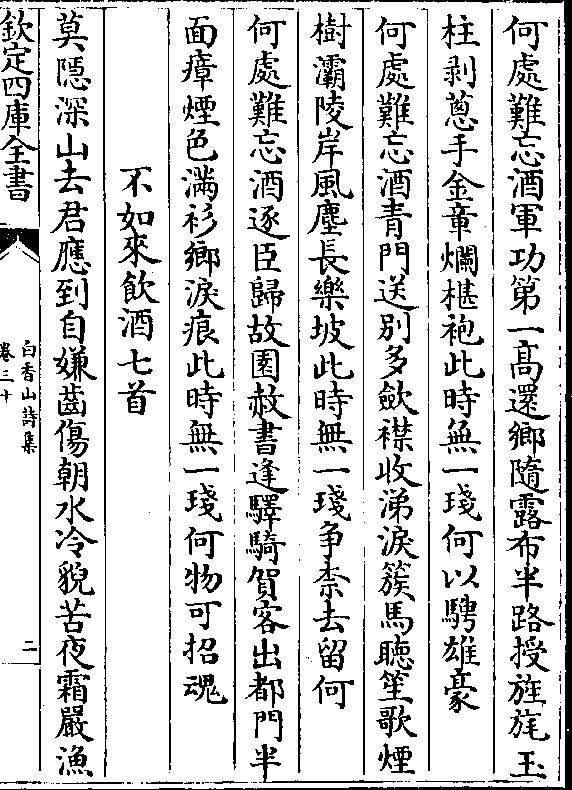 何處難忘酒軍功第一高還鄉隨露布半路授旌旄玉
柱剥蔥手金章爛椹袍此時無一琖何以騁雄豪
何處難忘酒青門送别多歛襟收涕淚簇馬聽笙歌煙
樹灞陵岸風塵長樂坡此時無一琖争柰去留何
何處難忘酒逐臣歸故園赦書逢驛騎賀客出都門半
面瘴煙色滿衫鄉淚痕此時無一琖何物可招魂
不如來飲酒七首
莫隠深山去君應到自嫌齒傷朝水冷貌苦夜霜嚴漁
欽定四庫全書
白香山詩集
卷三十
二